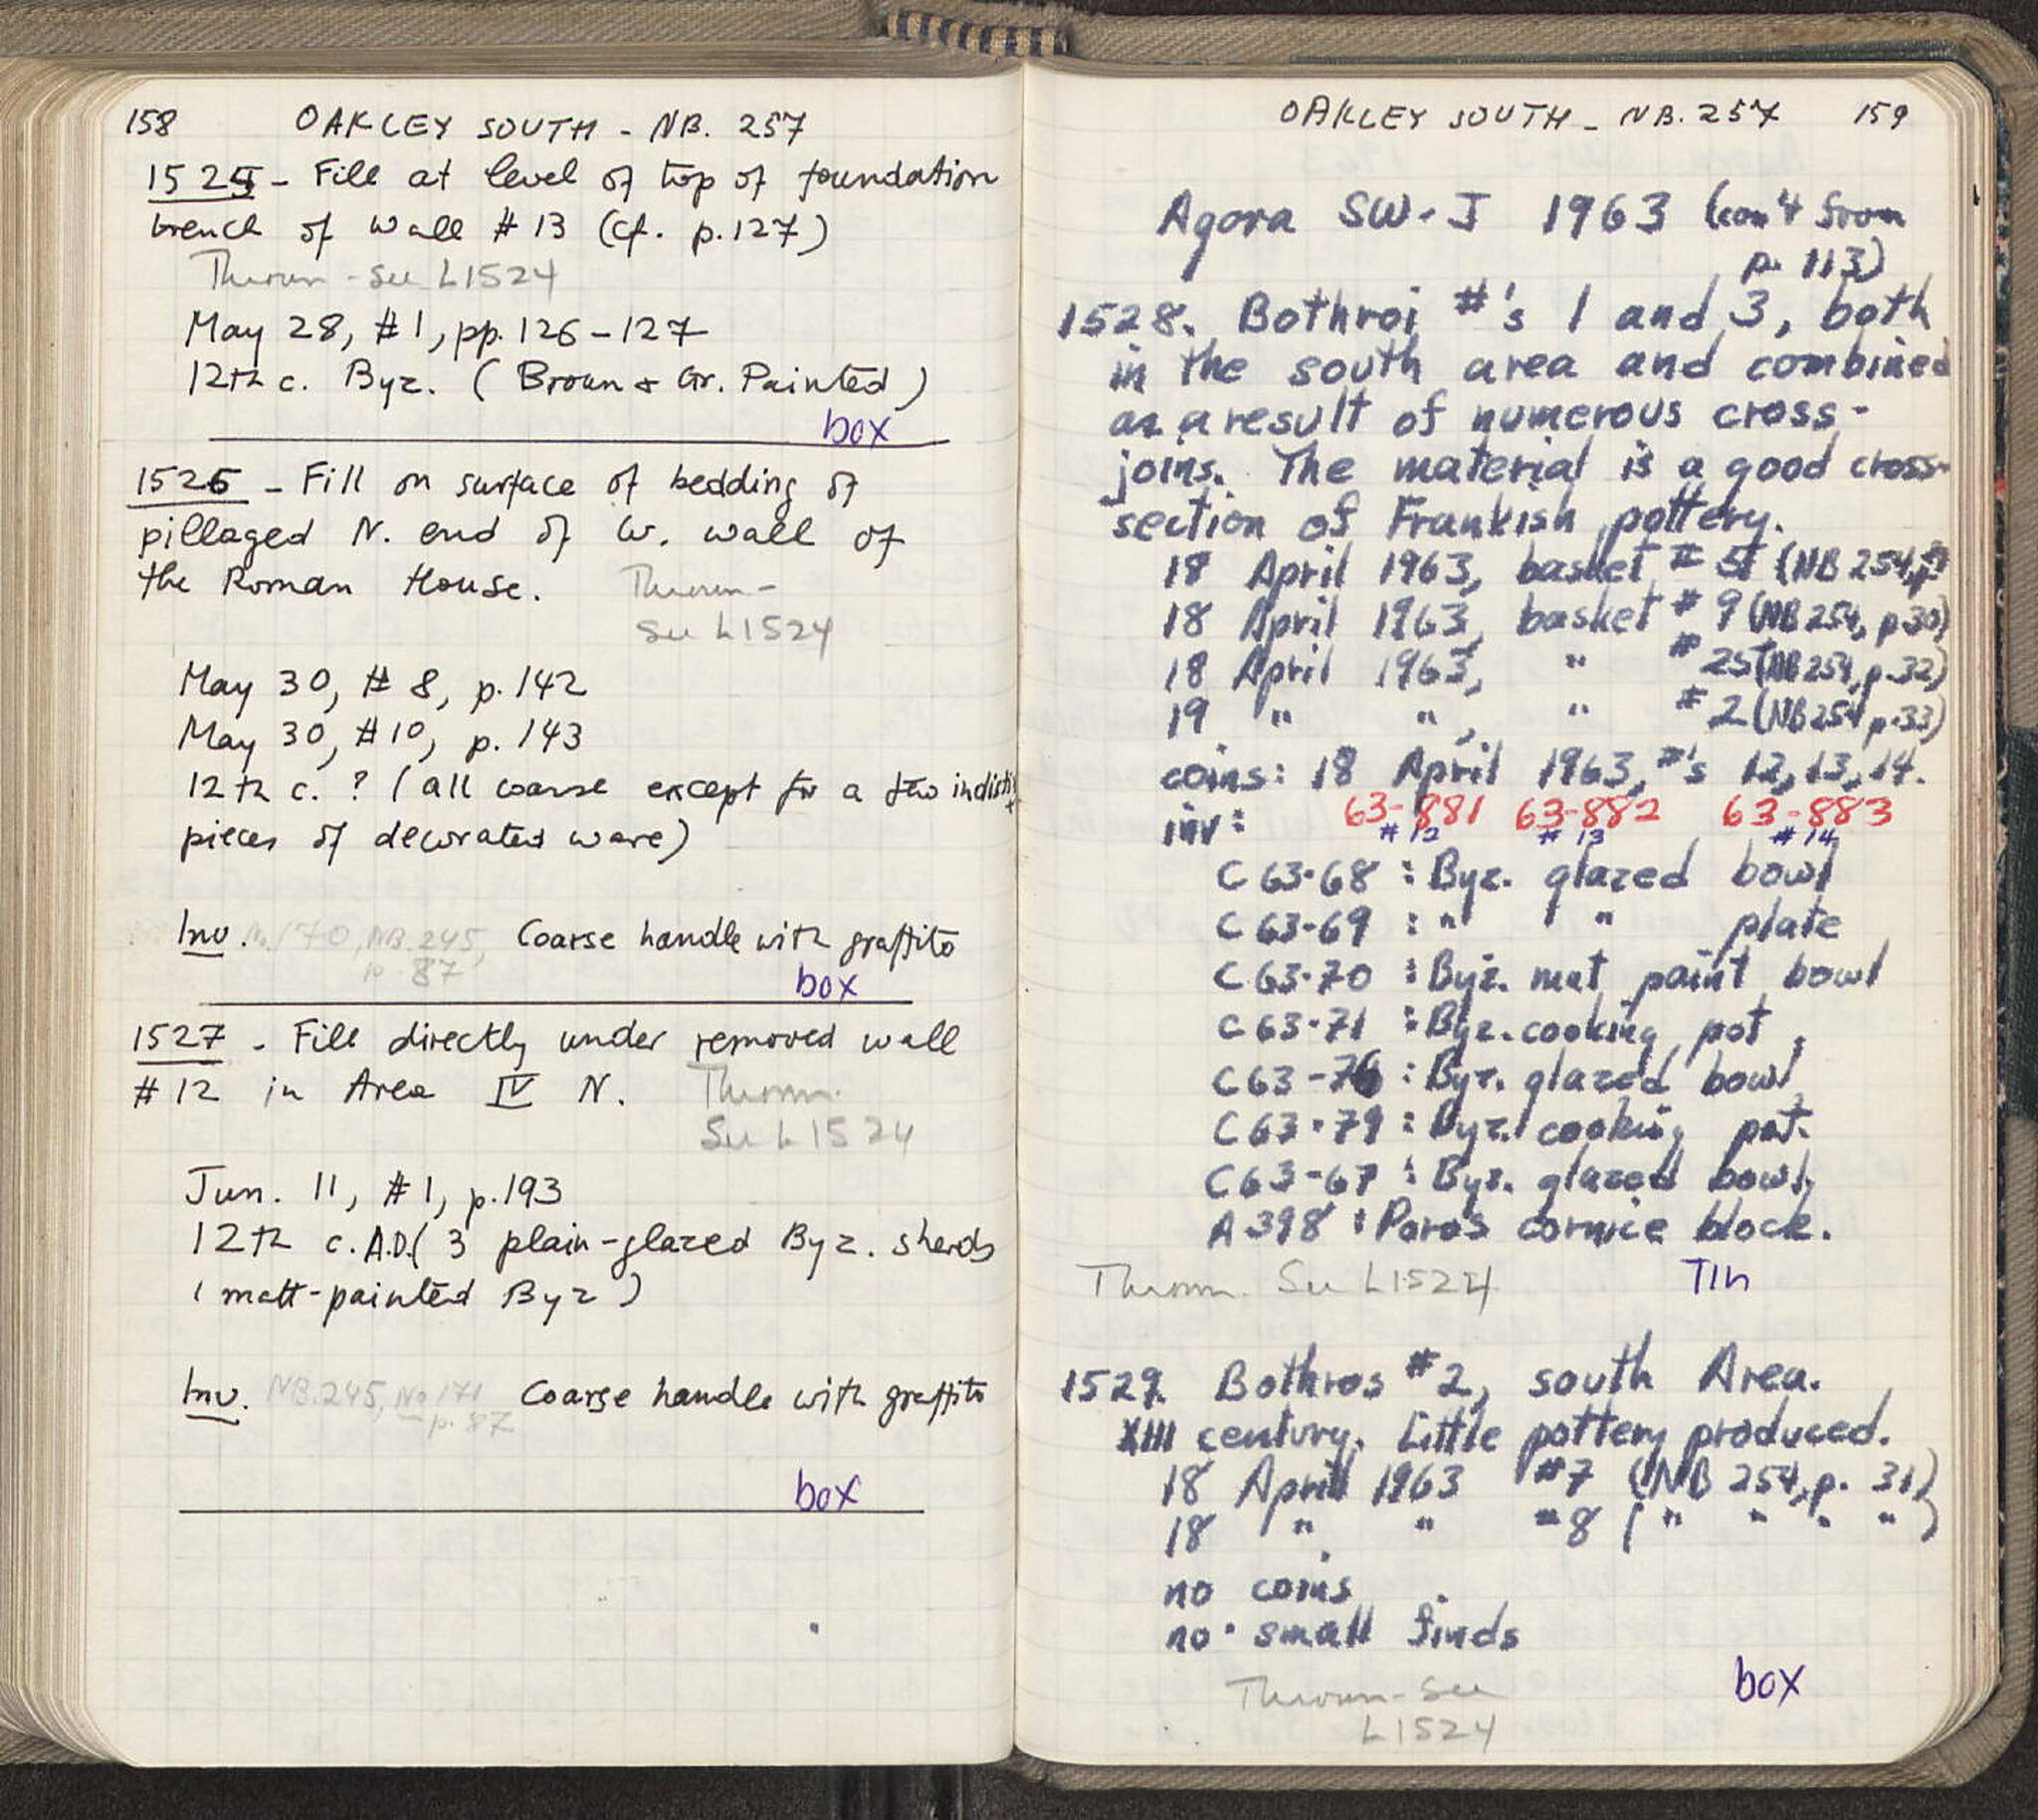 158 OAKLEY SOUTH - NB. 257
1525 - Fill at level of top of foundation
trench of Wall #13 (cf. p.127)
Thrown - See L1524
May 28, #1, pp. 126-127
12th c. Byz. (Brown & Gr. Painted)
box
1526 - Fill on surface of bedding of
pillaged N. end of W. wall of
the Roman House. Thrown -
See L1524
May 30, #8, p. 142
May 30, #10, p. 143
12th c. ? (all coarse except for a few indist
pieces of decorated ware)
Inv. No. 170, NB. 245, Coarse handle with graffito
p. 87
box
1527 - Fill directly under removed wall
#12 in Area IV N. Thrown.
See L1524
Jun. 11, #1, p. 193
12th c. A.D. (3 plain-glazed Byz. sherds
1 matt-painted Byz)
Inv. NB. 245, No 171 Coarse handle with graffito
p. 87
box
OAKLEY SOUTH - NB. 257 159
Agora SW-J 1963 (con't from
p. 113)
1528. Bothroi #'s 1 and 3, both
in the south area and combined
as a result of numerous cross-
joins. The material is a good cross-
section of Frankish pottery.
18 April 1963, basket # 5 (NB 254, p.
18 April 1963, basket # 9 (NB 254, p.30)
18 April 1963, " # 25 (NB 254, p.32)
19 " ", " # 2 (NB 254 p.33)
coins: 18 April 1963, #'s 12, 13, 14.
inv: 63-881 63-882 63-883
#12 #13 #14
C 63-68 : Byz. glazed bowl
C 63-69 : " " plate
C 63-70 : Byz. mat paint bowl
C 63-71 : Byz. cooking pot
C 63-76 : Byz. glazed bowl
C 63-79 : Byz. cooking pot.
C 63-67 : Byz. glazed bowl
A 398 : Poros cornice block.
Thrown. See L1524 TIn
1529. Bothros #2, south Area.
XIII century. Little pottery produced.
18 April 1963 #7 (NB 254, p. 31)
18 " " #8 (" " " ")
no coins
no small finds
Thrown - See box
L1524